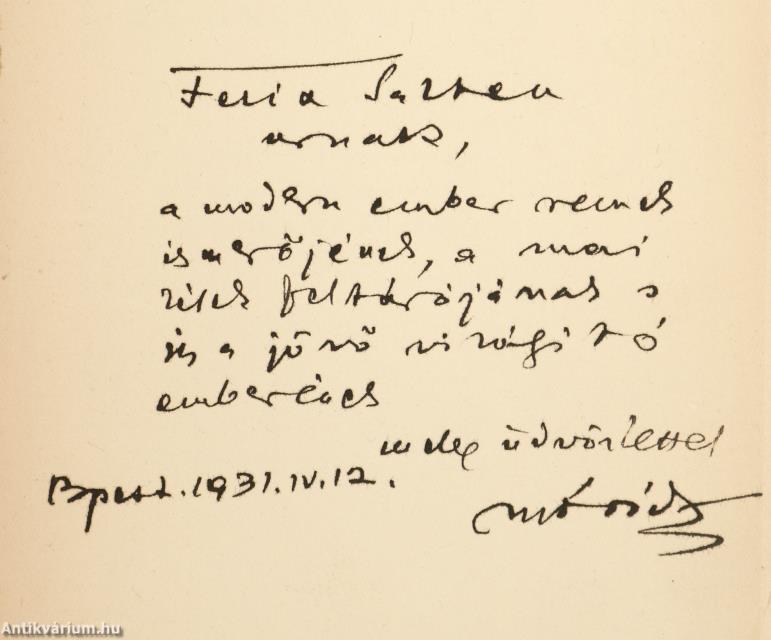 Felix Salten
urnak,
a modern ember remek
ismerőjének, a mai
lélek feltárójának s
a jövő világitó
emberének
meleg üdvözlettel
Bpest. 1931. IV. 12.
Antikvárium.hu